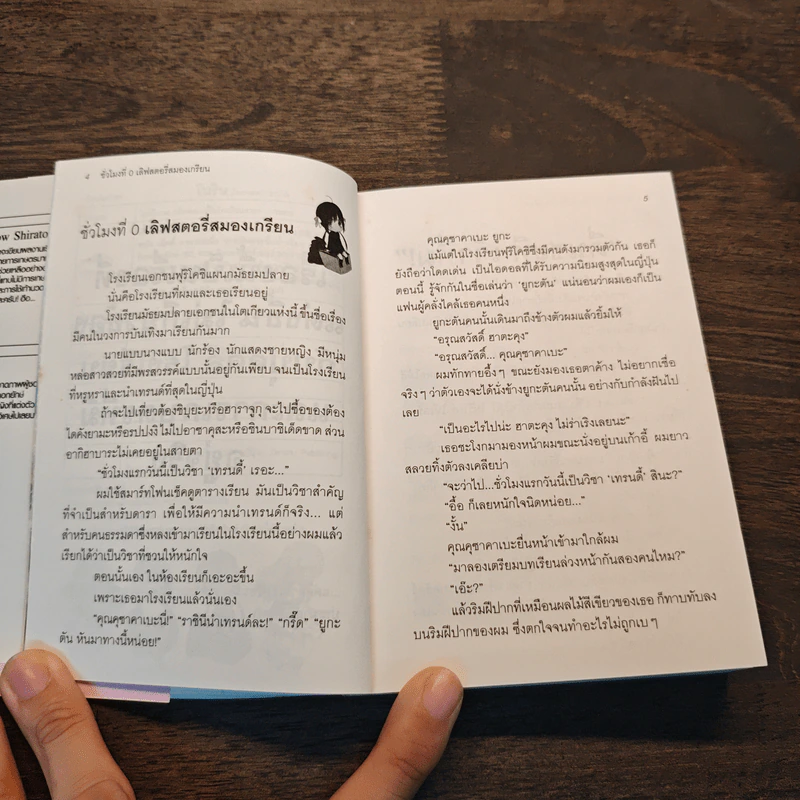 4 ชั่วโมงที่ 0 เลิฟสตอรี่สมองเกรียน
ชั่วโมงที่ 0 เลิฟสตอรี่สมองเกรียน
โรงเรียนเอกชนฟุริโคชิแผนกมัธยมปลาย
นั่นคือโรงเรียนที่ผมและเธอเรียนอยู่
โรงเรียนมัธยมปลายเอกชนในโตเกียวแห่งนี้ ขึ้นชื่อเรื่อง
มีคนในวงการบันเทิงมาเรียนกันมาก
นายแบบนางแบบ นักร้อง นักแสดงชายหญิง มีหนุ่ม
หล่อสาวสวยที่มีพรสวรรค์แบบนั้นอยู่กันเพียบ จนเป็นโรงเรียน
ที่หรูหราและนำเทรนด์ที่สุดในญี่ปุ่น
ถ้าจะไปเที่ยวต้องชิบุยะหรือฮาราจูกุ จะไปซื้อของต้อง
ไดคังยามะหรือรปปงงิ ไม่ไปอาซาคุสะหรือชินบาชิเด็ดขาด ส่วน
อากิฮาบาระไม่เคยอยู่ในสายตา
“ชั่วโมงแรกวันนี้เป็นวิชา ‘เทรนดี้’ เรอะ...”
ผมใช้สมาร์ทโฟนเช็คดูตารางเรียน มันเป็นวิชาสำคัญ
ที่จำเป็นสำหรับดารา เพื่อให้มีความนำเทรนด์ก็จริง... แต่
สำหรับคนธรรมดาซึ่งหลงเข้ามาเรียนในโรงเรียนนี้อย่างผมแล้ว
เรียกได้ว่าเป็นวิชาที่ชวนให้หนักใจ
ตอนนั้นเอง ในห้องเรียนก็เอะอะขึ้น
เพราะเธอมาโรงเรียนแล้วนั่นเอง
“คุณคุซาคาเบะนี่!” “ราชินีนำเทรนด์ละ!” “กรี๊ด” “ยูกะ
ตัน หันมาทางนี้หน่อย!”
5
คุณคุซาคาเบะ ยูกะ
แม้แต่ในโรงเรียนฟุริโคชิซึ่งมีคนดังมารวมตัวกัน เธอก็
ยังถือว่าโดดเด่น เป็นไอดอลที่ได้รับความนิยมสูงสุดในญี่ปุ่น
ตอนนี้ รู้จักกันในชื่อเล่นว่า ‘ยูกะตัน’ แน่นอนว่าผมเองก็เป็น
แฟนผู้คลั่งไคล้เธอคนหนึ่ง
ยูกะตันคนนั้นเดินมาถึงข้างตัวผมแล้วยิ้มให้
“อรุณสวัสดิ์ ฮาตะคุง”
“อรุณสวัสดิ์... คุณคุซาคาเบะ”
ผมทักทายอึ้งๆ ขณะยังมองเธอตาค้าง ไม่อยากเชื่อ
จริงๆ ว่าตัวเองจะได้นั่งข้างยูกะตันคนนั้น อย่างกับกำลังฝันไป
เลย
“เป็นอะไรไปน่ะ ฮาตะคุง ไม่ร่าเริงเลยนะ”
เธอชะโงกมามองหน้าผมขณะนั่งอยู่บนเก้าอี้ ผมยาว
สลวยทิ้งตัวลงเคลียบ่า
“จะว่าไป...ชั่วโมงแรกวันนี้เป็นวิชา ‘เทรนดี้’ สินะ?”
“อื้อ ก็เลยหนักใจนิดหน่อย...”
“งั้น”
คุณคุซาคาเบะยื่นหน้าเข้ามาใกล้ผม
“มาลองเตรียมบทเรียนล่วงหน้ากันสองคนไหม?”
“เอ๊ะ?”
แล้วริมฝีปากที่เหมือนผลไม้สีเขียวของเธอ ก็ทาบทับลง
บนริมฝีปากของผม ซึ่งตกใจจนทำอะไรไม่ถูกเบๆ